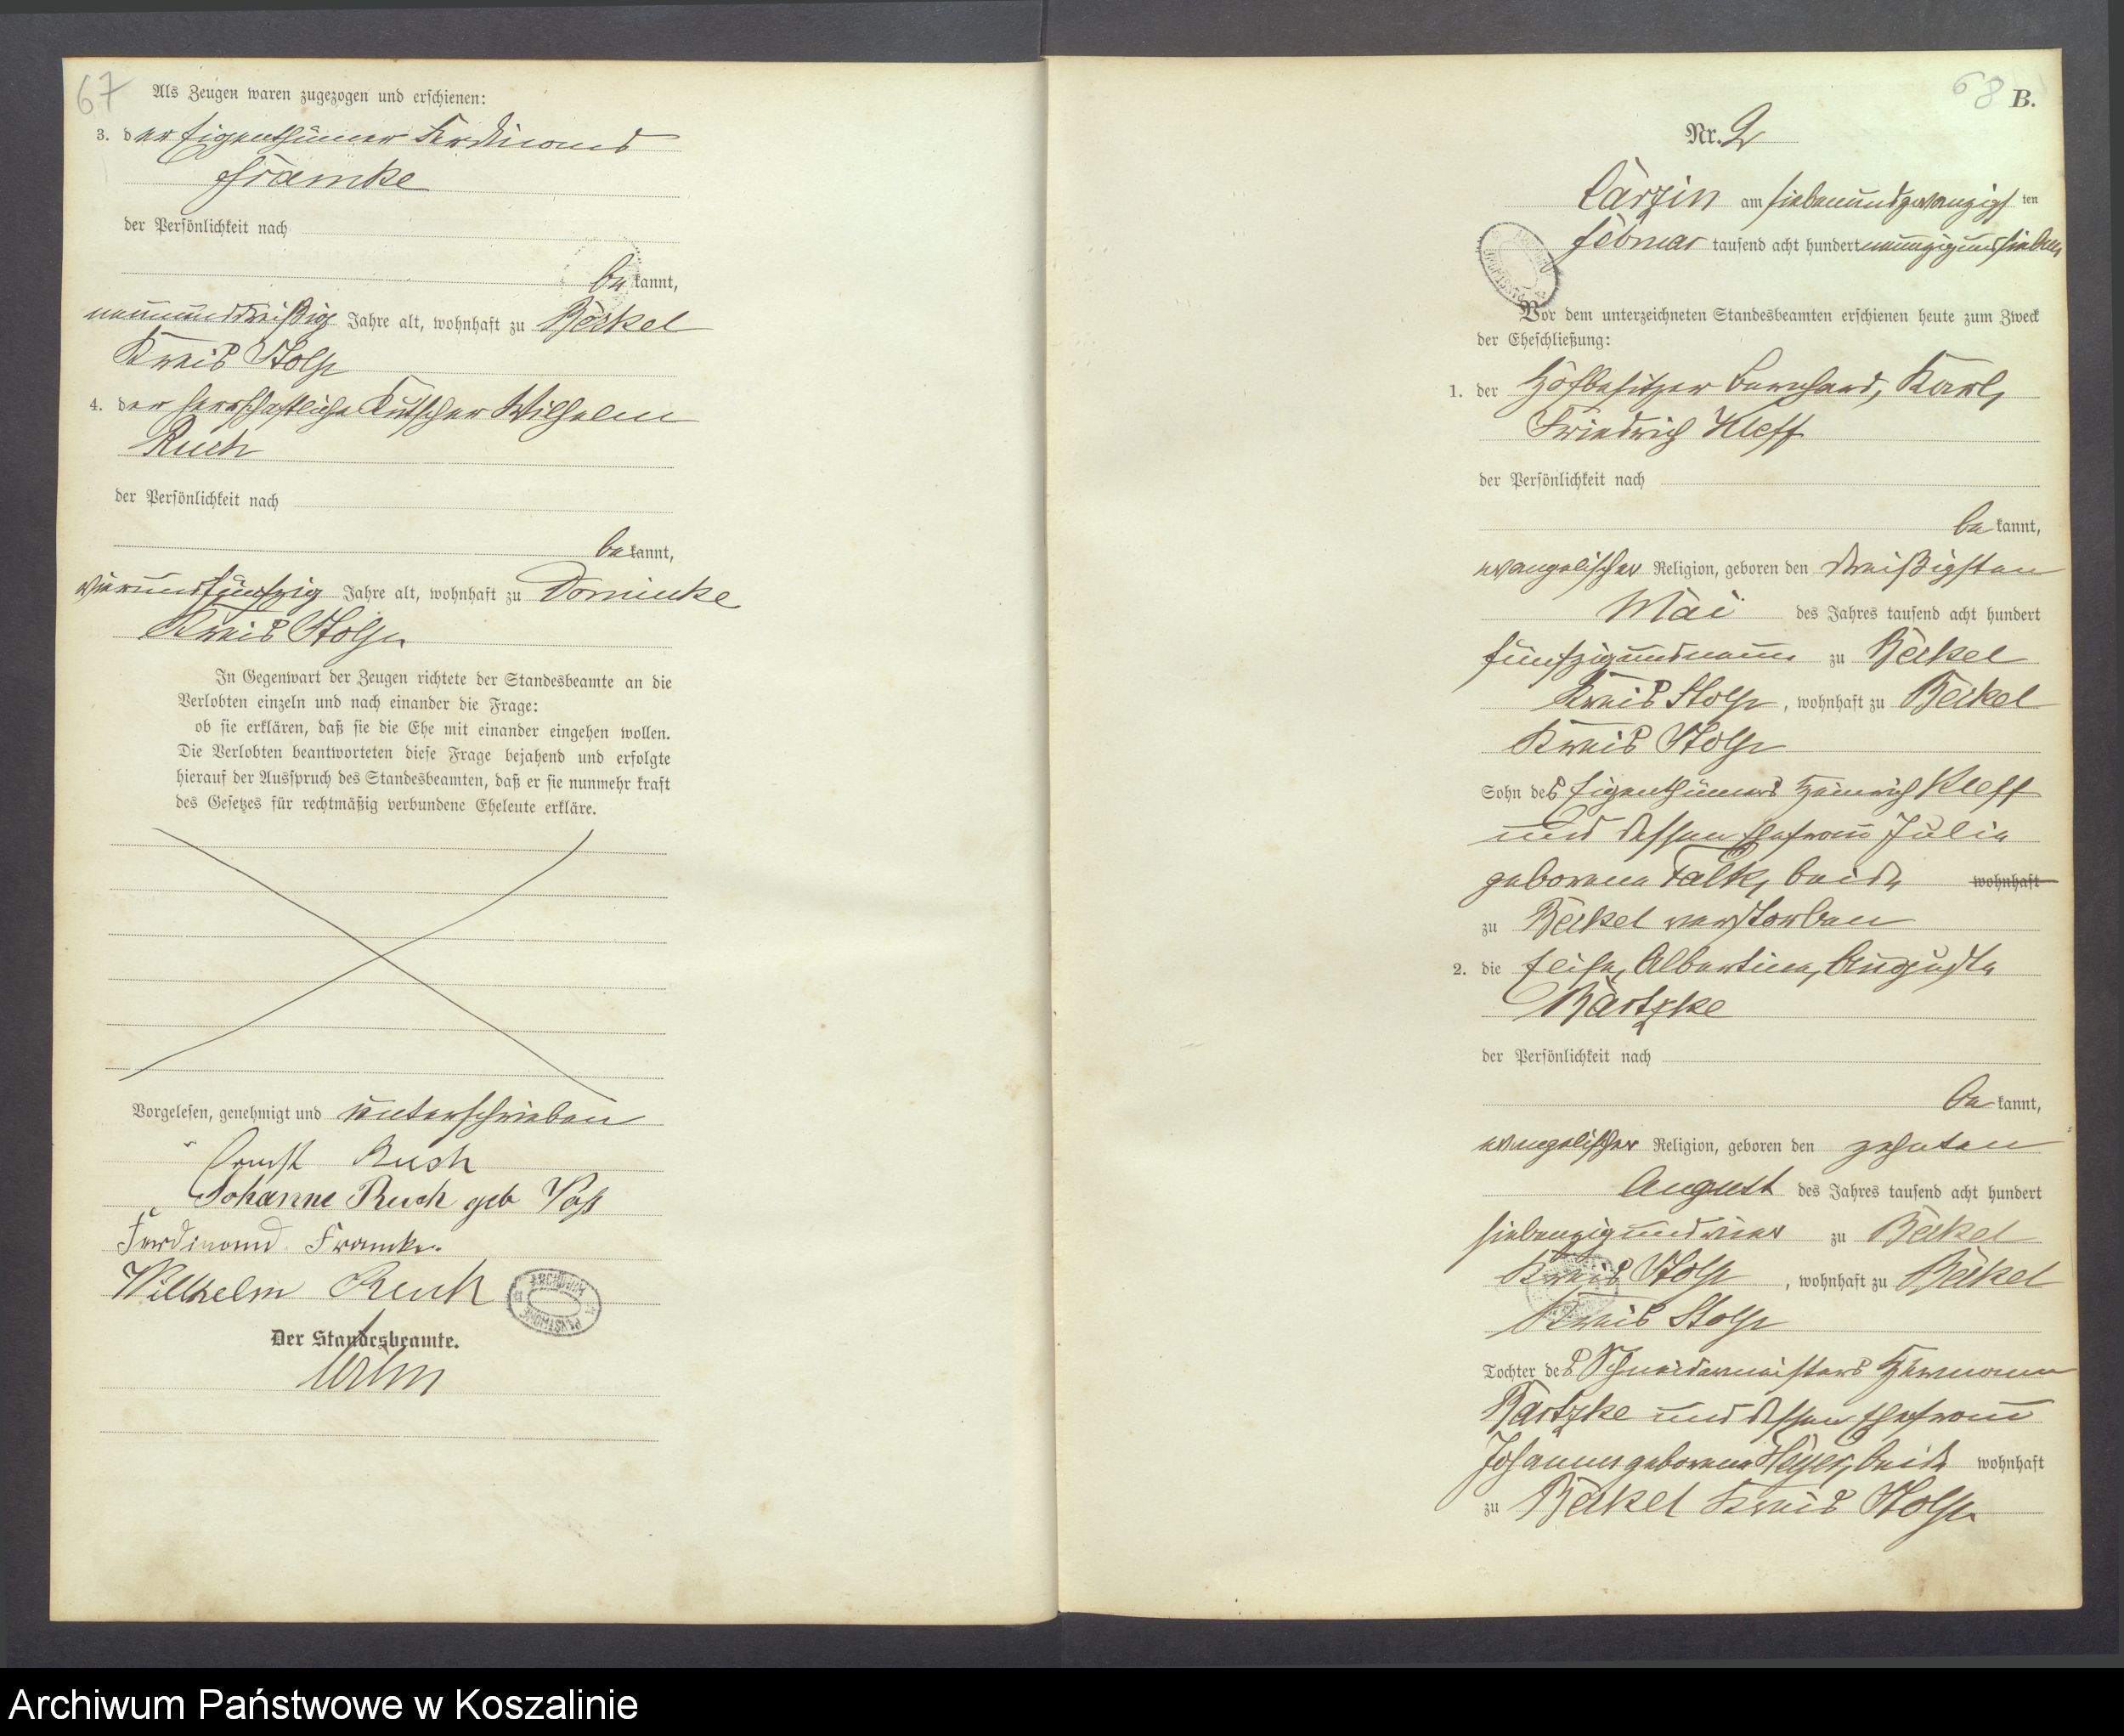 67
Als Zeugen waren zugezogen und erschienen:
3. der Eigenthümer Ferdinand
Framke
der Persönlichkeit nach
be kannt,
neununddreißig Jahre alt, wohnhaft zu Beckel
Kreis Stolp
4. der herrschaftliche Kutscher Wilhelm
Ruch
der Persönlichkeit nach
be kannt,
vierundfünfzig Jahre alt, wohnhaft zu Dominke
Kreis Stolp.
In Gegenwart der Zeugen richtete der Standesbeamte an die
Verlobten einzeln und nach einander die Frage:
ob sie erklären, daß sie die Ehe mit einander eingehen wollen.
Die Verlobten beantworteten diese Frage bejahend und erfolgte
hierauf der Ausspruch des Standesbeamten, daß er sie nunmehr kraft
des Gesetzes für rechtmäßig verbundene Eheleute erkläre.
Vorgelesen, genehmigt und unterschrieben
Ruch
Johanne Ruch geb
Ferdinand Framke.
Wilhelm Ruch
ARCHIWUM PAŃSTWOWE
Der Standesbeamte.
68
B.
Nr. 2
Carzin am siebenundzwanzigs ten
Februar tausend acht hundert neunzigundsieben
Vor dem unterzeichneten Standesbeamten erschienen heute zum Zweck
der Eheschließung:
1. der Hofbesitzer Bernhard, Karl,
Friedrich Kleff
der Persönlichkeit nach
be kannt,
evangelischer Religion, geboren den dreißigsten
Mai des Jahres tausend acht hundert
fünfzigundneun zu Beckel
Kreis Stolp, wohnhaft zu Beckel
Kreis Stolp
Sohn des Eigenthümers Heinrich Kleff
und dessen Ehefrau Julie
geborene Falk, beide wohnhaft
zu Beckel verstorben
2. die Elise, Albertine, Auguste
Bartzke
der Persönlichkeit nach
be kannt,
evangelischer Religion, geboren den zehnten
August des Jahres tausend acht hundert
siebenzigundvier zu Beckel
Kreis Stolp, wohnhaft zu Beckel
Kreis Stolp
Tochter des Schneidermeisters Hermann
Bartzke und dessen Ehefrau
Johanne geborene Heyer, beide wohnhaft
zu Beckel Kreis Stolp.
Archiwum Państwowe w Koszalinie